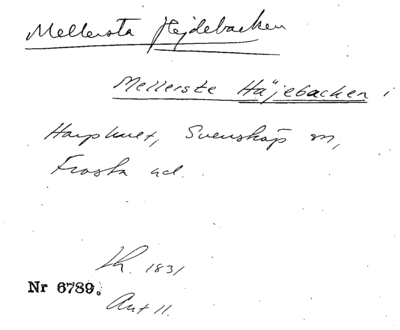 Mellersta Hejdebacken
Mellerste Häjebacken i
Harphult, Svensköp sn,
Frosta hd.
Lh. 1831
Nr 6789.
Akt 11.